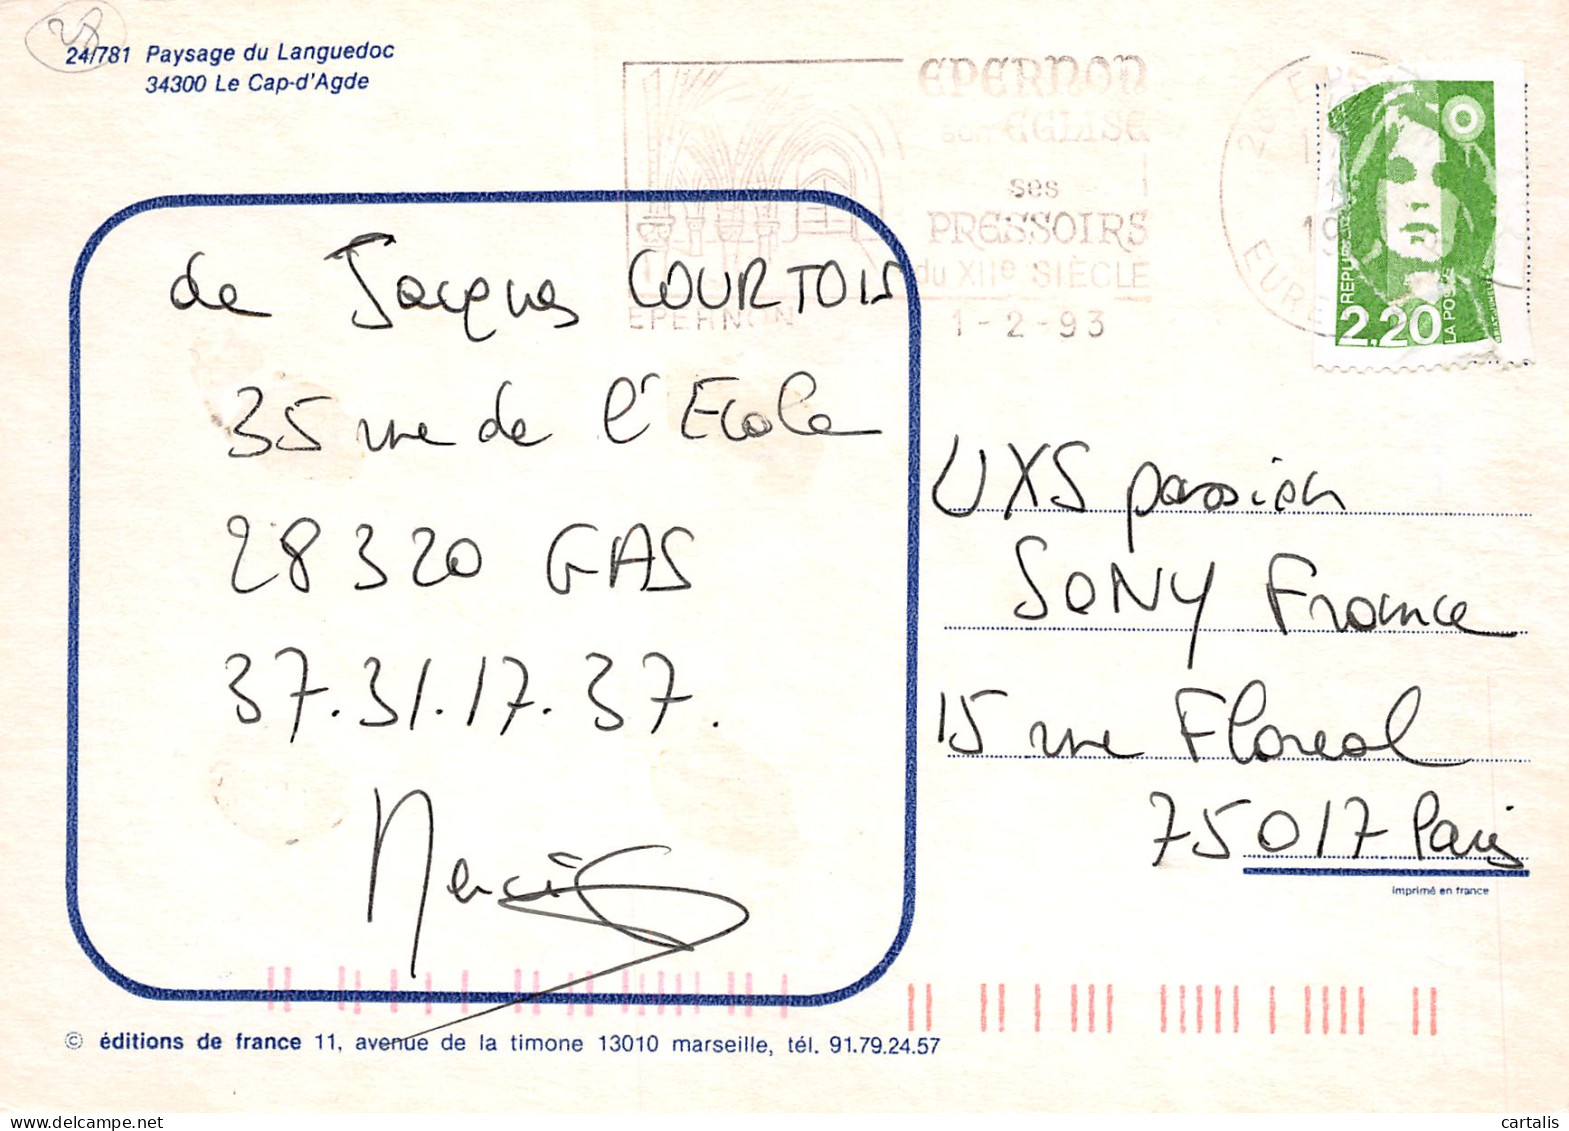 28
24/781 Paysage du Languedoc
34300 Le Cap-d'Agde
EPERNON
son EGLISE
ses
PRESSOIRS
du XIIe SIÈCLE
EPERNON
1-2-93
28
EURE
2,20
LA POSTE
de Jacques COURTOIS
35 rue de l'Ecole
28320 GAS
37.31.17.37.
Merci
UXS passion
SONY France
15 rue Floreal
75017 Paris
imprimé en france
© éditions de france 11, avenue de la timone 13010 marseille, tél. 91.79.24.57
cartalis